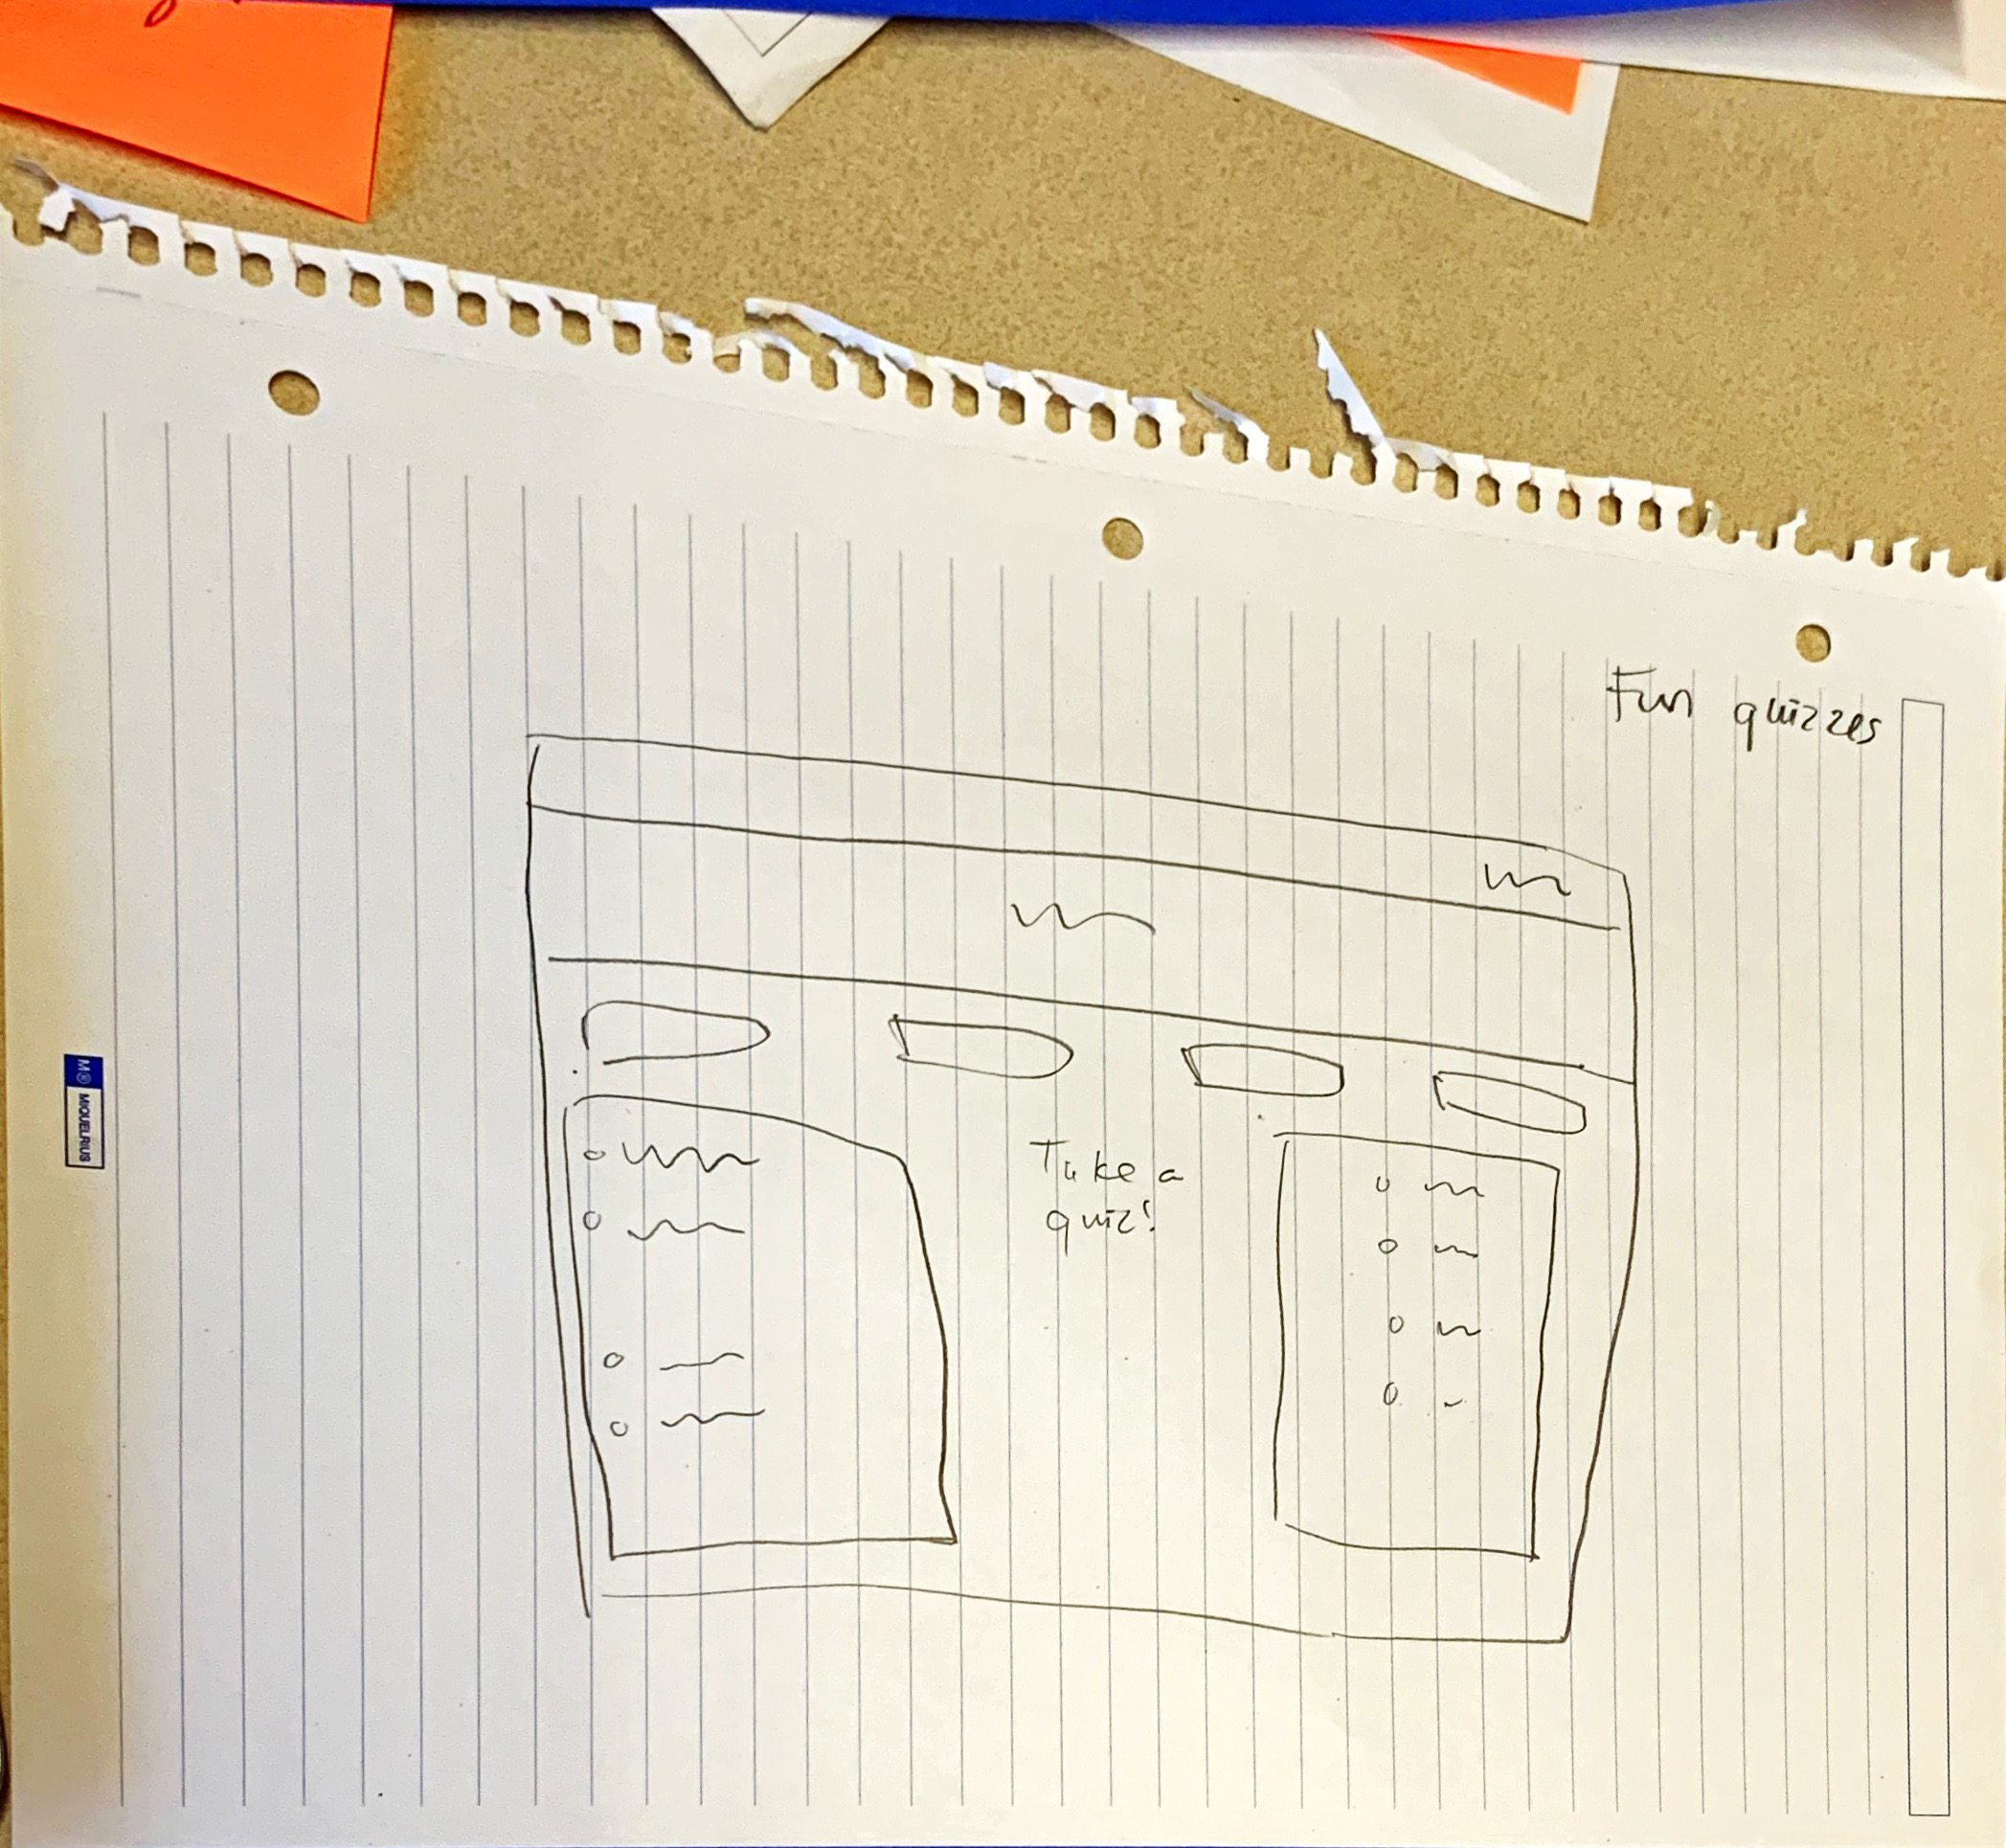 Fun quizzes
Take a
quiz!
M
MIQUELRIUS